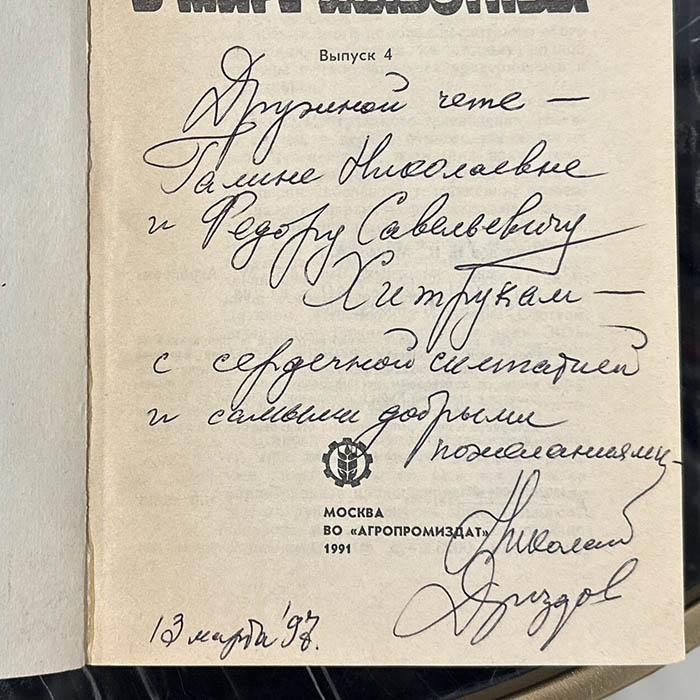 В МИРЕ ЖИВОТНЫХ
Выпуск 4
Дружной чете —
Галине Николаевне
и Федору Савельевичу
Хитрукам —
с сердечной симпатией
и самыми добрыми
пожеланиями,
МОСКВА
ВО «АГРОПРОМИЗДАТ»
1991
Николай
Дроздов
13 марта '97г.